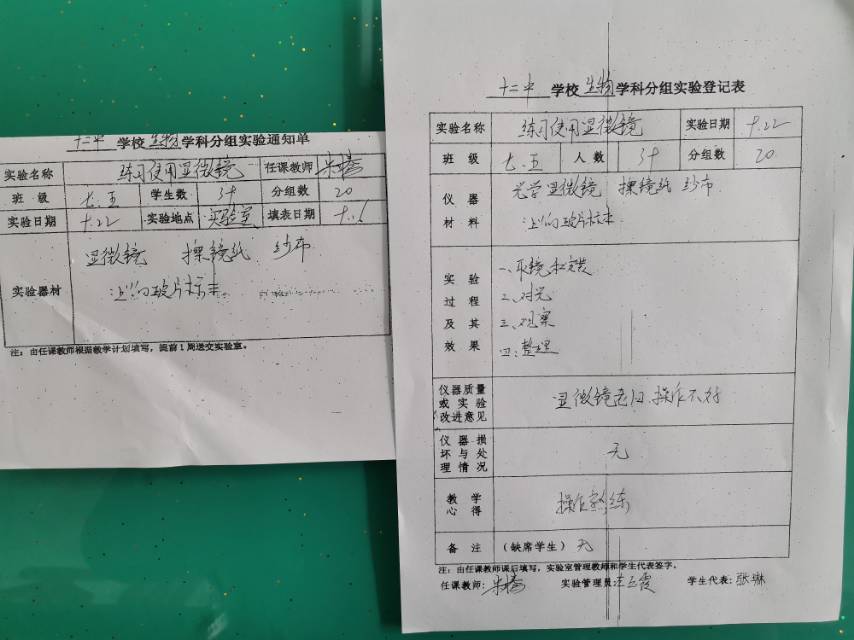 十二中 学校 生物 学科分组实验通知单
实验名称 练习使用显微镜 任课教师
班 级 七.五 学生数 34 分组数 20
实验日期 9.22 实验地点 实验室 填表日期
实验器材
显微镜 擦镜纸 纱布
注：由任课教师根据教学计划填写，提前1周送交实验室。
十二中 学校 生物 学科分组实验登记表
实验名称 练习使用显微镜 实验日期 9.22
班 级 七.五 人 数 分组数 20
仪器材料
光学显微镜 擦镜纸 纱布
实验过程及其效果
一、取镜和安装
二、对光
三、观察
四、整理
仪器质量或实验改进意见
显微镜老旧、操作不好
仪器损坏与处理情况
无
教学心得
操作熟练
备 注 （缺席学生）无
注：由任课教师课后填写，实验室管理教师和学生代表签字。
任课教师： 实验管理员： 学生代表：张琳